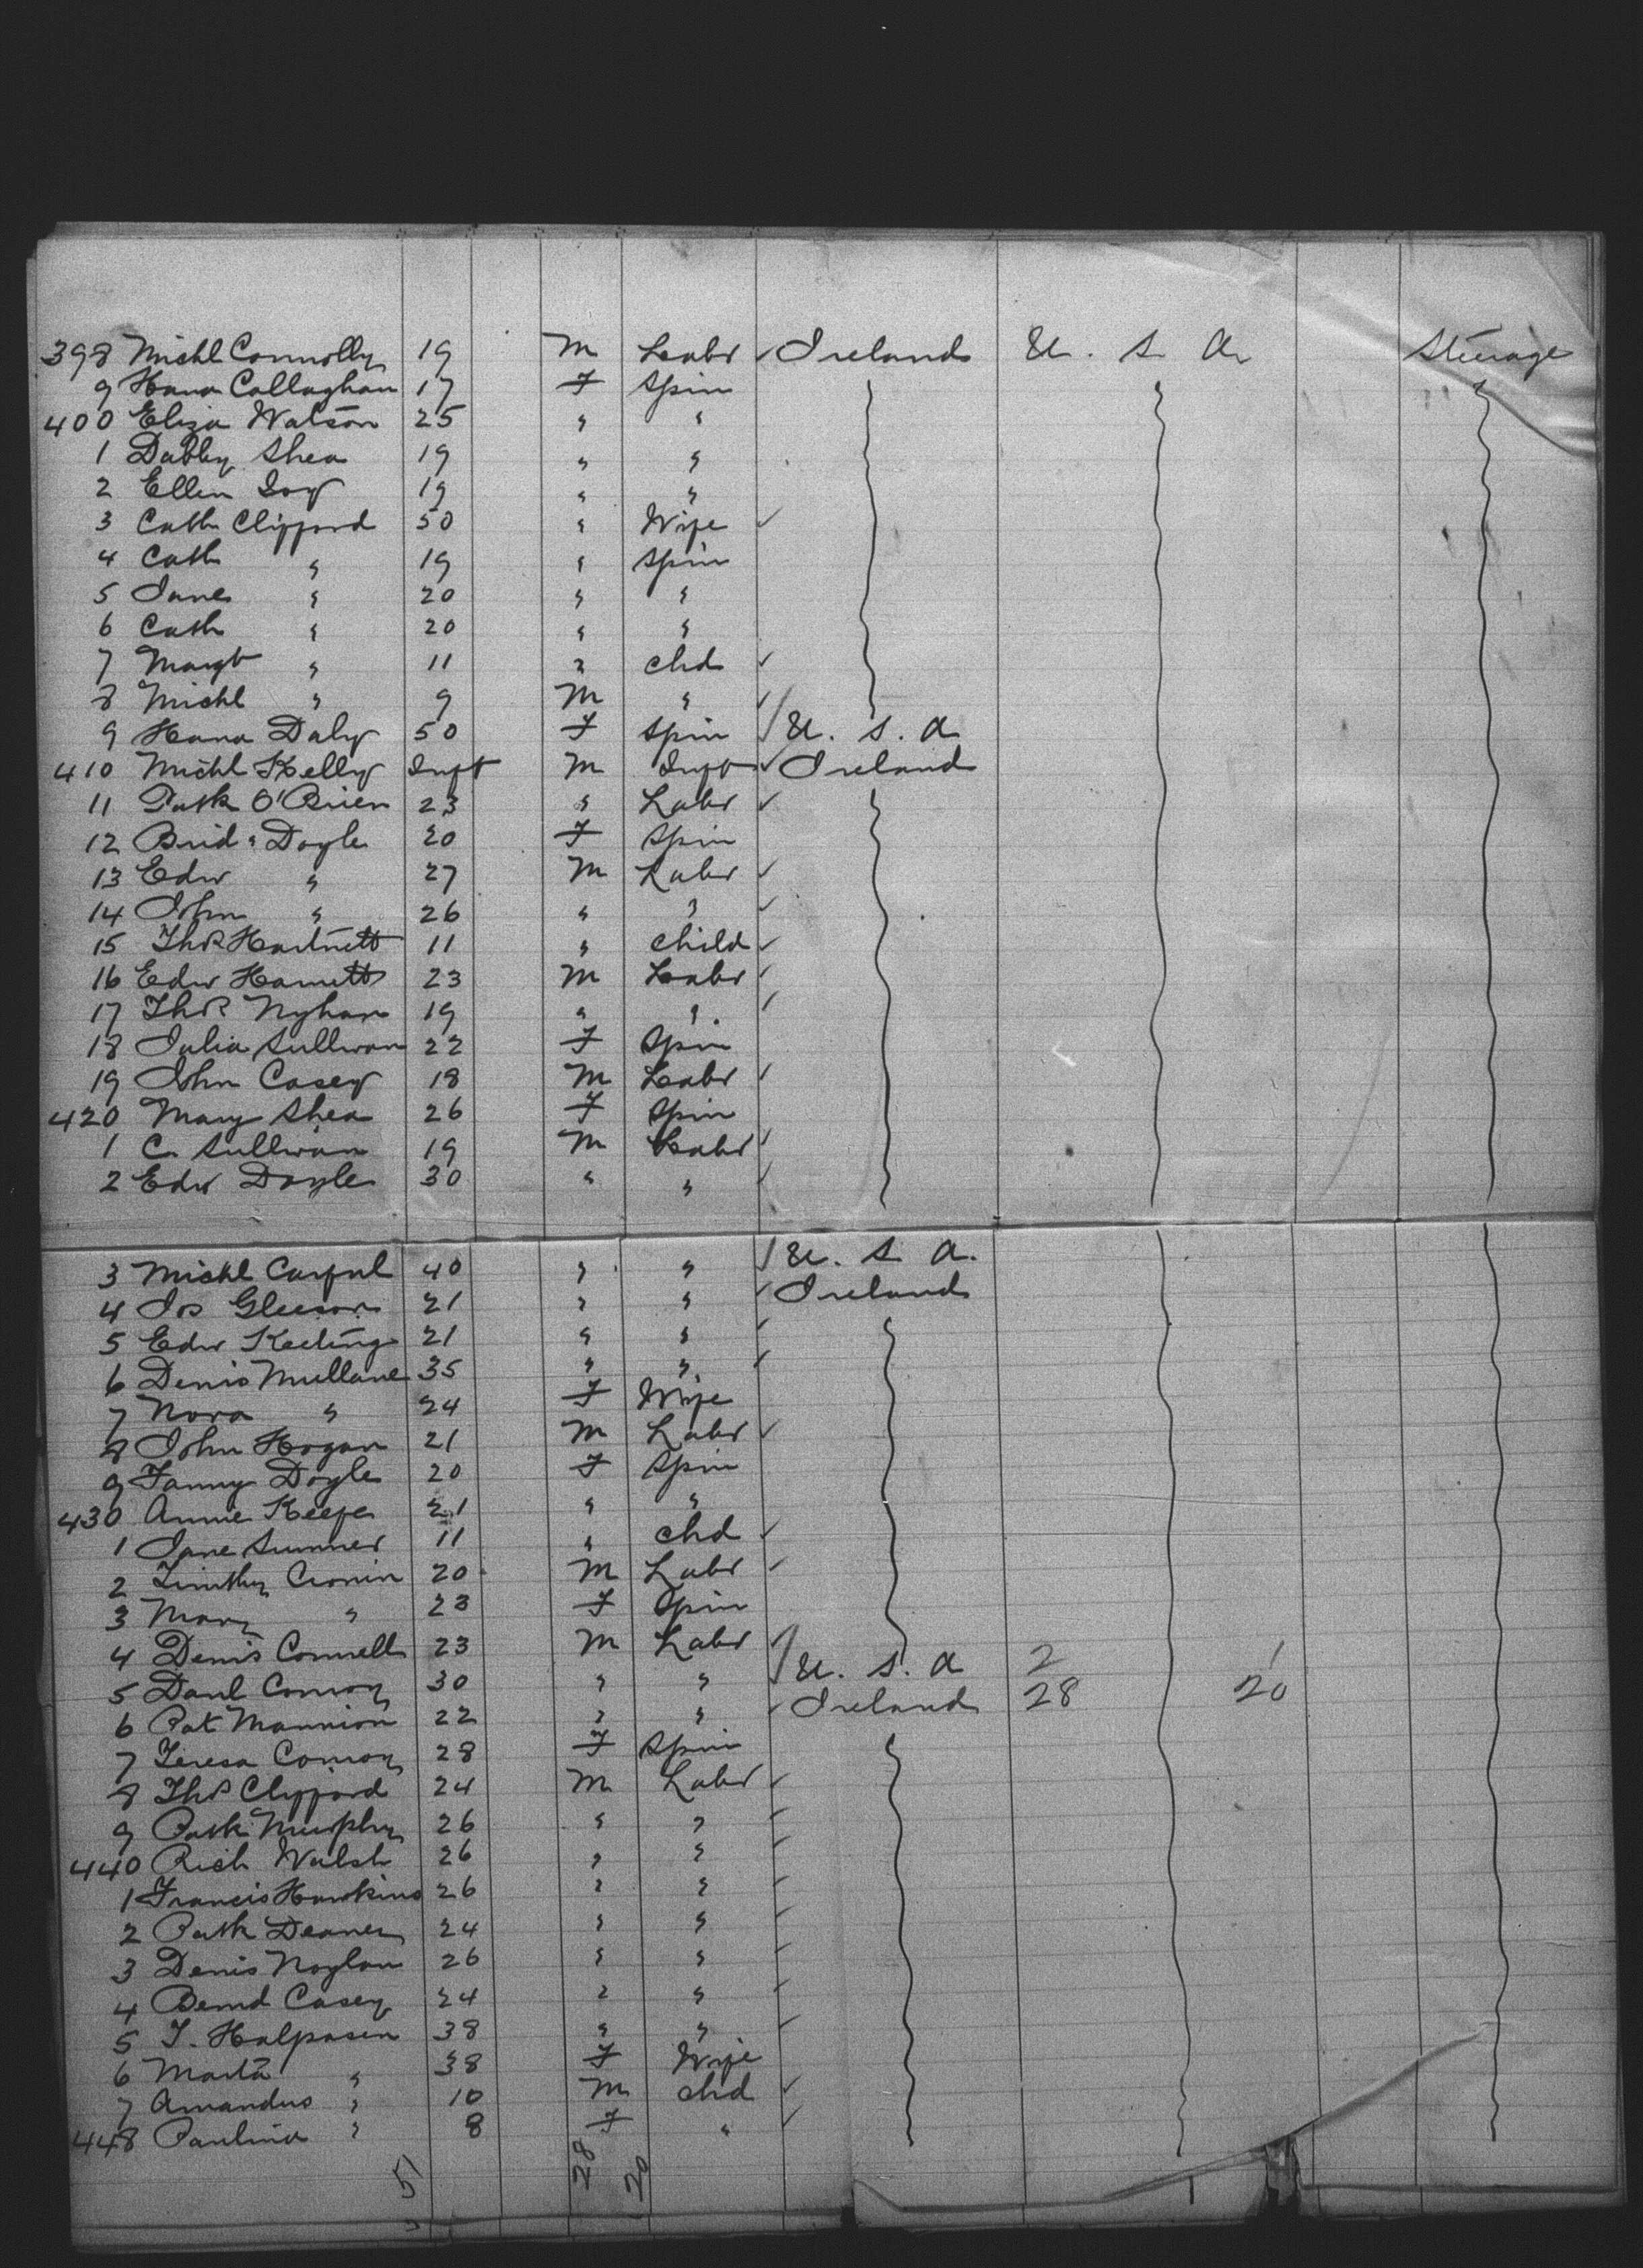 398 Michl Connolly 19 M Labr ✓ Ireland U. S. A. Steerage
9 Hana Callaghan 17 F Spin
400 Eliza Watson 25 " "
1 Dabby Shea 19 " "
2 Ellen Joy 19 " "
3 Cath Clifford 50 " Wife ✓
4 Cath " 19 " Spin
5 Jane " 20 " "
6 Cath " 20 " "
7 Margt " 11 " Chd ✓
8 Michl " 9 M " ✓
9 Hana Daly 50 F Spin / U. S. A
410 Michl Kelly Inft M Inft ✓ Ireland
11 Patk O'Brien 23 " Labr ✓
12 Brid " Doyle 20 F Spin
13 Edw " 27 M Labr ✓
14 John " 26 " " ✓
15 Thos Hartnett 11 " Child ✓
16 Edw Harnett 23 M Labr ✓
17 Thos Nyhan 19 " " ✓
18 Julia Sullivan 22 F Spin
19 John Casey 18 M Labr ✓
420 Mary Shea 26 F Spin
1 C. Sullivan 19 M Labr ✓
2 Edw Doyle 30 " " ✓
3 Michl 40 " " / U. S. A.
4 Jos Gleeson 21 " " ✓ Ireland
5 Edw Keeling 21 " " ✓
6 Denis Mullane 35 " " ✓
7 Nora " 24 F Wife
8 John Hogan 21 M Labr ✓
9 Fanny Doyle 20 F Spin
430 Annie Keefe 21 " "
1 Jane Sumner 11 " Chd ✓
2 Timthy Cronin 20 M Labr ✓
3 Mary " 23 F Spin
4 Denis Connell 23 M Labr / U. S. A 2 1
5 Danl Conroy 30 " " Ireland 28 20
6 Pat Mannion 22 " " ✓
7 Teresa Conroy 28 F Spin
8 Thos Clifford 24 M Labr ✓
9 Patk Murphy 26 " " ✓
440 Rich Walsh 26 " " ✓
1 Francis Hawkins 26 " " ✓
2 Patk Deaney 24 " " ✓
3 Denis Noylan 26 " " ✓
4 Bernd Casey 24 " " ✓
5 T. Halpasen 38 " " ✓
6 Marta " 38 F Wife
7 Amandus " 10 M Chd ✓
448 Paulina " 8 F " ✓
51 28 20